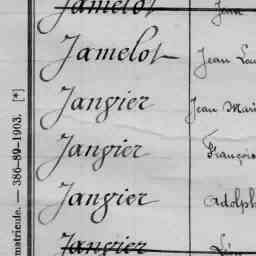 Jamelot Jean
Jamelot Jean Lou
Janvier Jean Mari
Janvier François
Janvier Adolph
Janvier Léon
matricule. — 386-89-1903. [*]